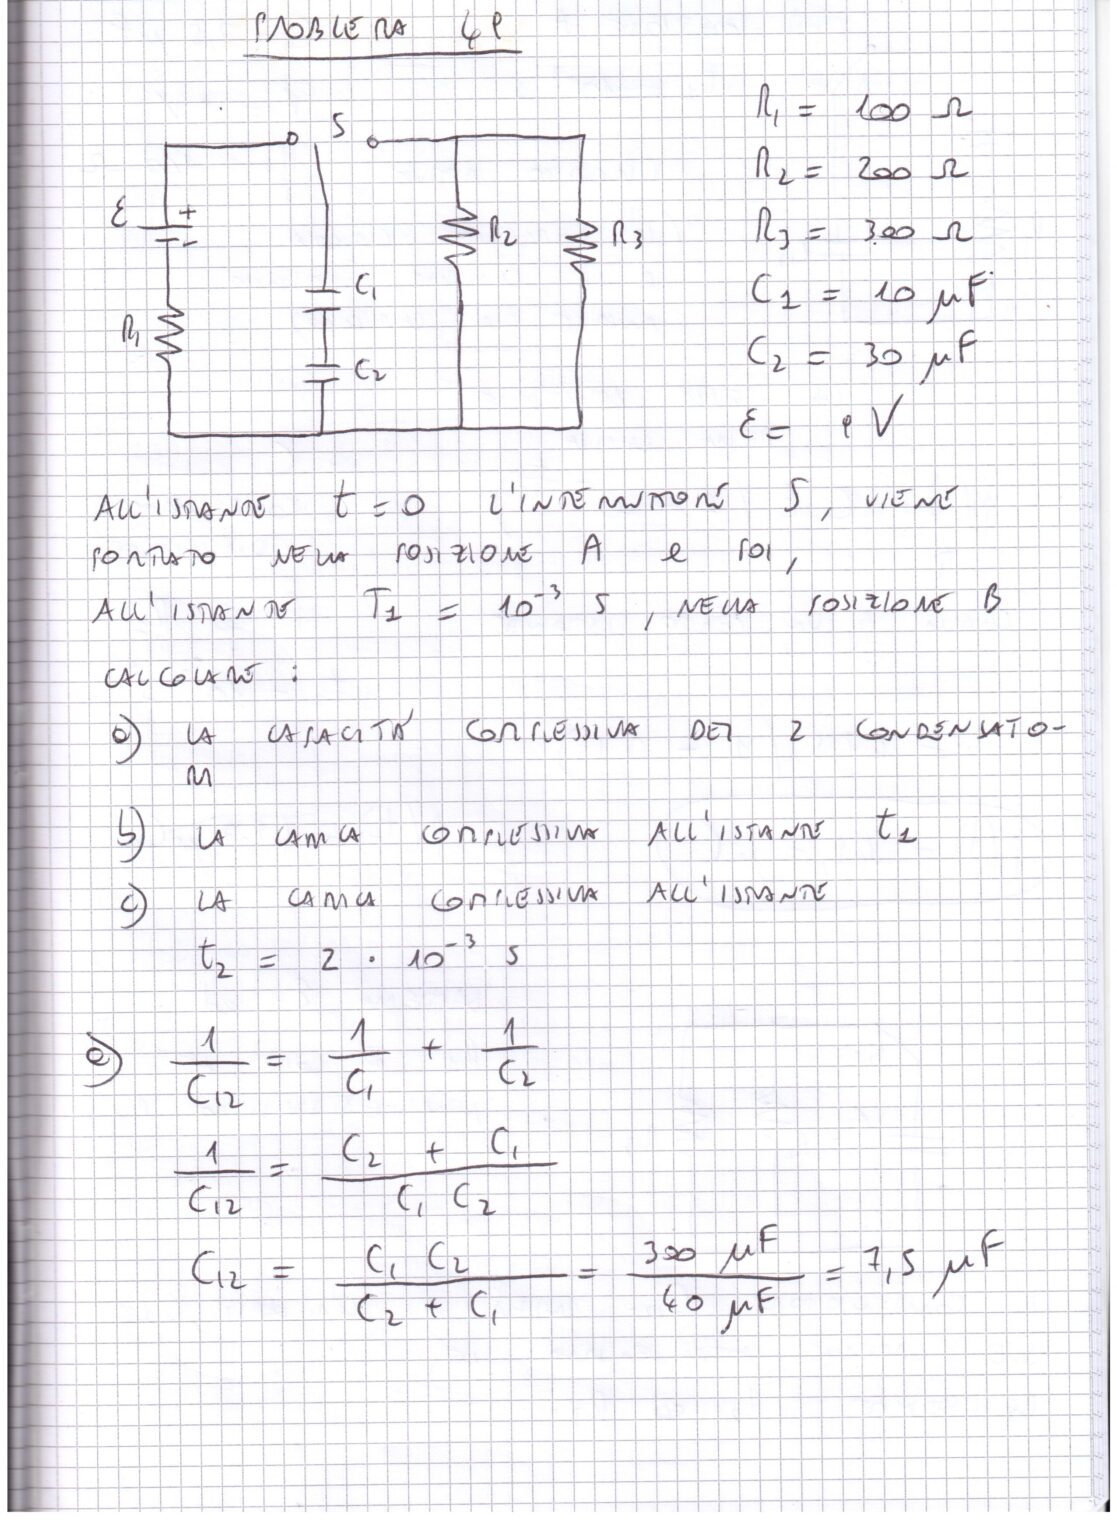 PROBLEMA 49
S
ε
+
-
R1
C1
C2
R2
R3
R1 = 100 Ω
R2 = 200 Ω
R3 = 300 Ω
C1 = 10 μF
C2 = 30 μF
ε = 9 V
ALL'ISTANTE t = 0 L'INTERRUTTORE S, VIENE
PORTATO NELLA POSIZIONE A e POI,
ALL'ISTANTE T1 = 10⁻³ s, NELLA POSIZIONE B
CALCOLARE :
a) LA CAPACITÀ COMPLESSIVA DEI 2 CONDENSATO-
RI
b) LA CARICA COMPLESSIVA ALL'ISTANTE t1
c) LA CARICA COMPLESSIVA ALL'ISTANTE
t2 = 2 · 10⁻³ s
a) 1/C12 = 1/C1 + 1/C2
1/C12 = (C2 + C1)/(C1 C2)
C12 = (C1 C2)/(C2 + C1) = 300 μF/40 μF = 7,5 μF